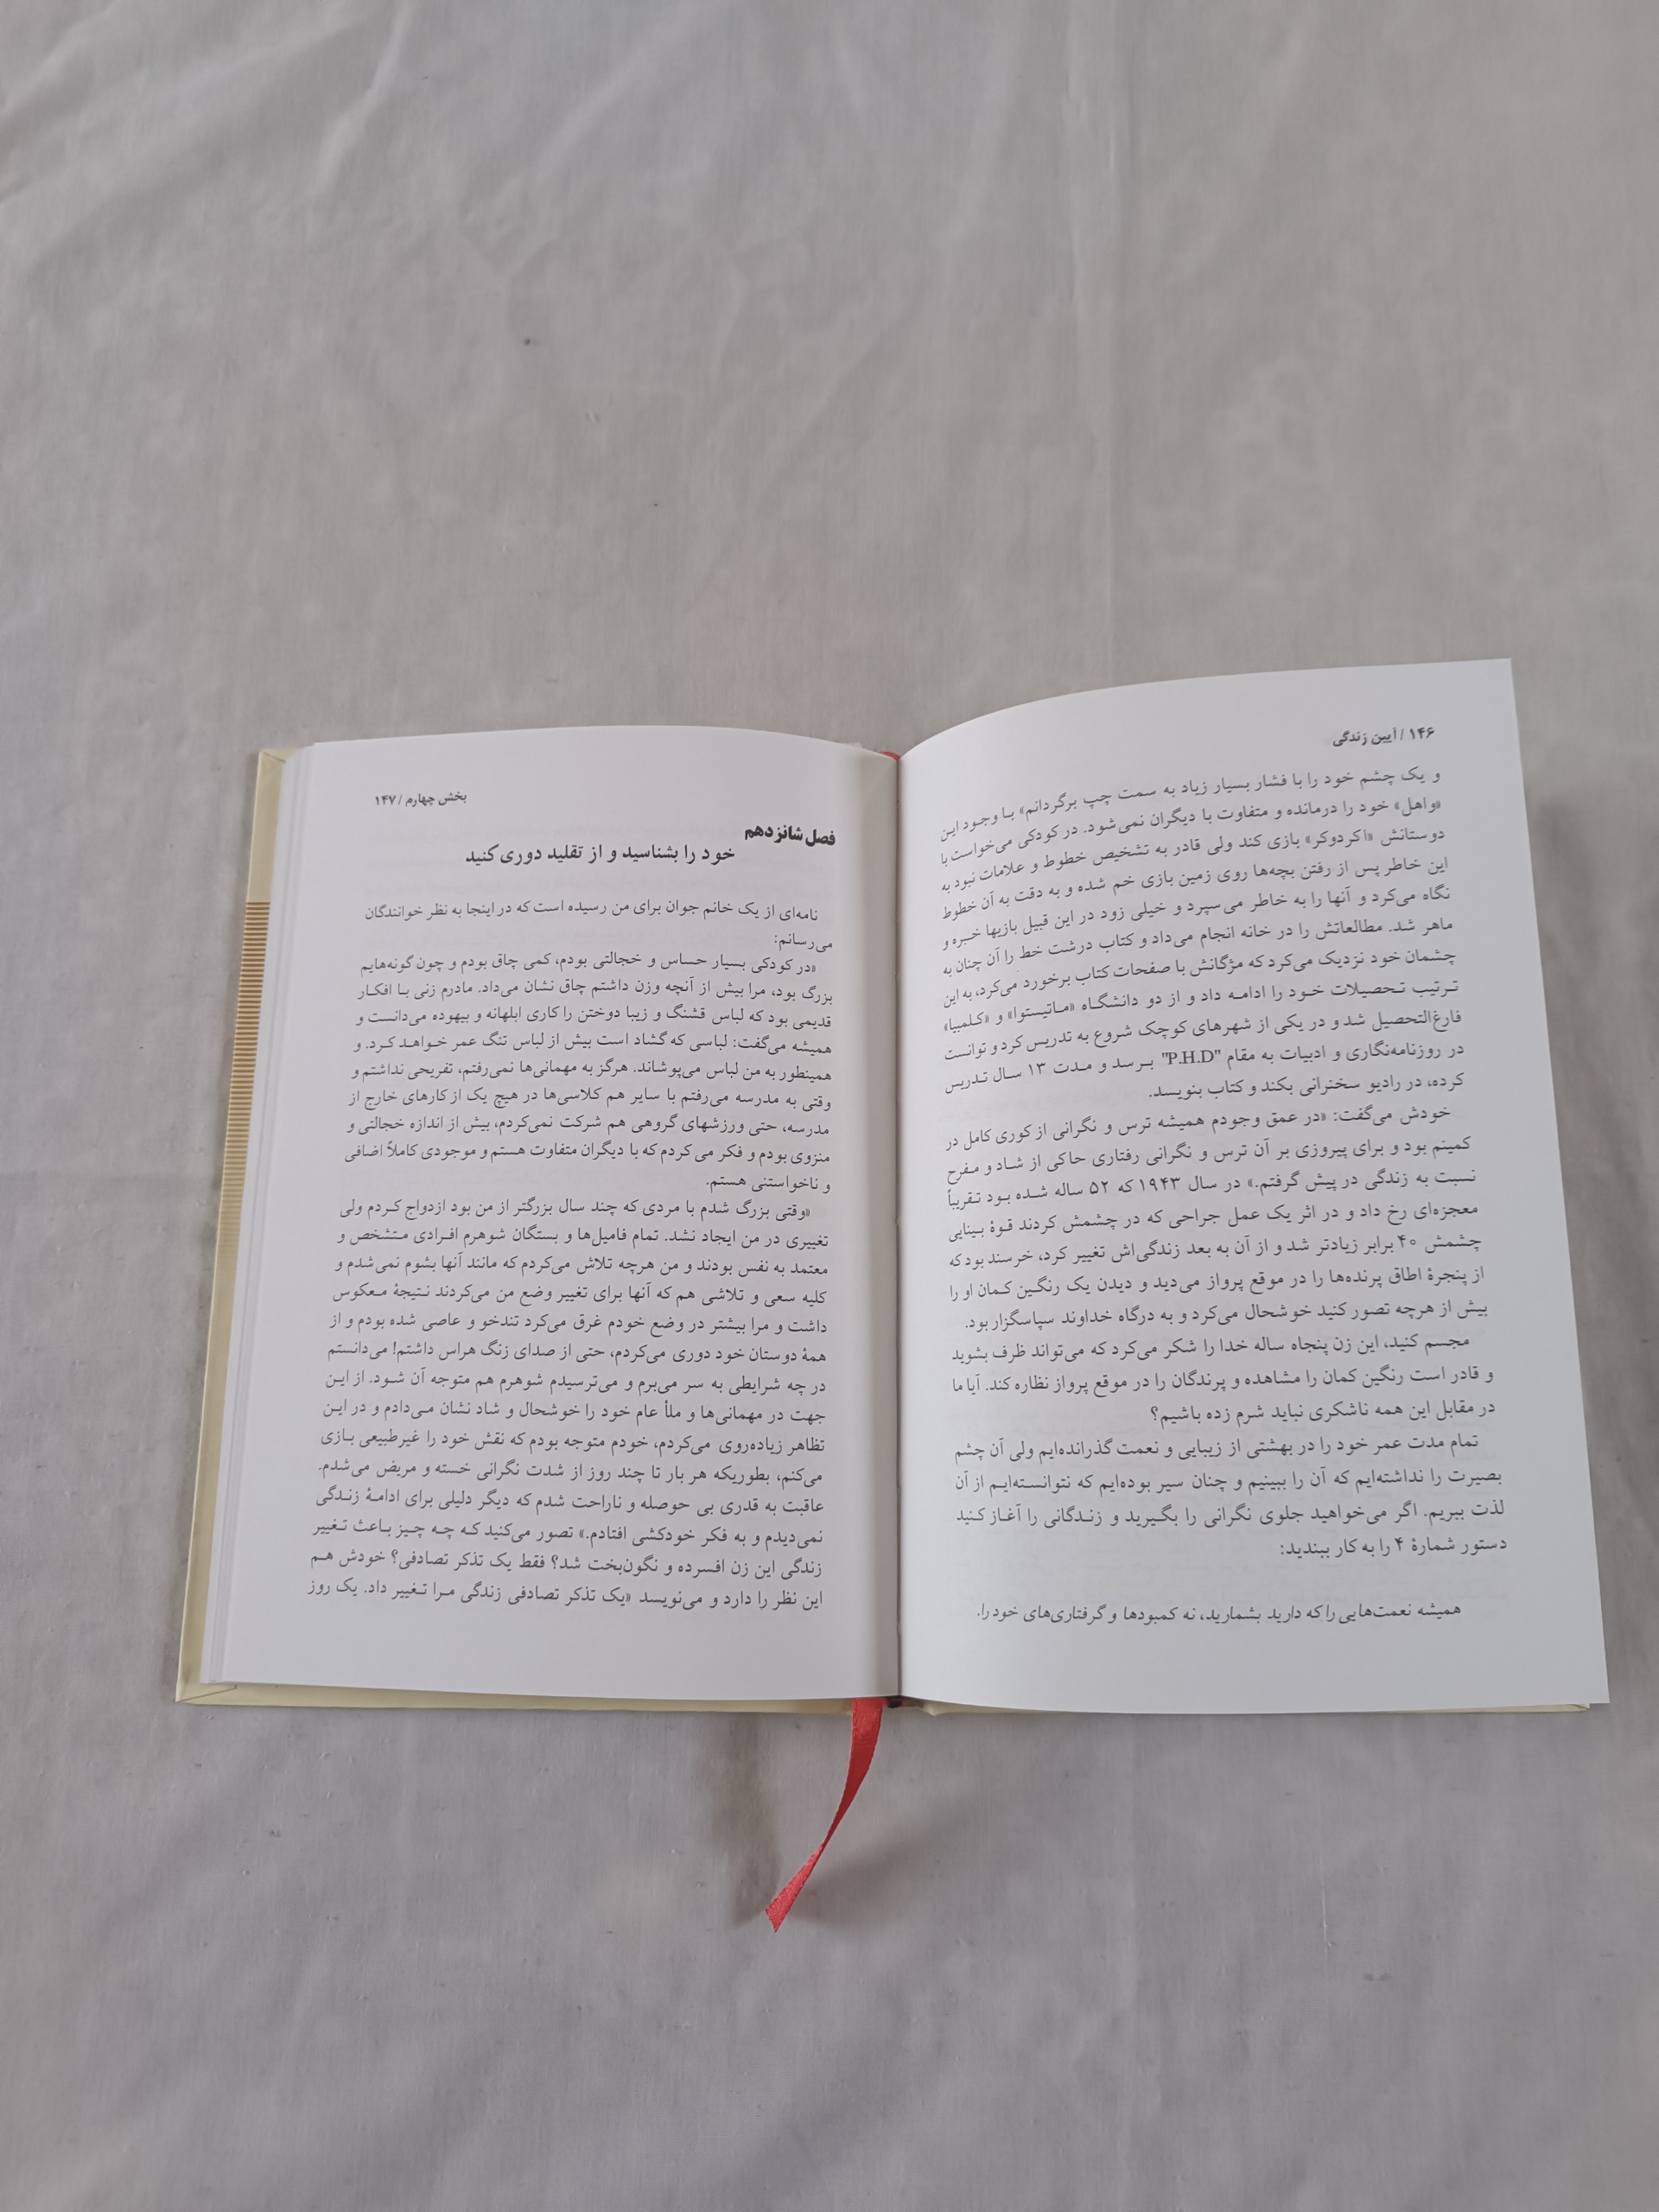 ۱۴۶ / آیین زندگی
و یک چشم خود را با فشار بسیار زیاد به سمت چپ برگردانم» با وجود این
«واهل» خود را درمانده و متفاوت با دیگران نمی‌شود. در کودکی می‌خواست با
دوستانش «اکردوکر» بازی کند ولی قادر به تشخیص خطوط و علامات نبود به
این خاطر پس از رفتن بچه‌ها روی زمین بازی خم شده و به دقت به آن خطوط
نگاه می‌کرد و آنها را به خاطر می‌سپرد و خیلی زود در این قبیل بازیها خبره و
ماهر شد. مطالعاتش را در خانه انجام می‌داد و کتاب درشت خط را آن چنان به
چشمان خود نزدیک می‌کرد که مژگانش با صفحات کتاب برخورد می‌کرد، به این
ترتیب تحصیلات خود را ادامه داد و از دو دانشگاه «ماتیستوا» و «کلمبیا»
فارغ‌التحصیل شد و در یکی از شهرهای کوچک شروع به تدریس کرد و توانست
در روزنامه‌نگاری و ادبیات به مقام "P.H.D" برسد و مدت ۱۳ سال تدریس
کرده، در رادیو سخنرانی بکند و کتاب بنویسد.
خودش می‌گفت: «در عمق وجودم همیشه ترس و نگرانی از کوری کامل در
کمینم بود و برای پیروزی بر آن ترس و نگرانی رفتاری حاکی از شاد و مفرح
نسبت به زندگی در پیش گرفتم.» در سال ۱۹۴۳ که ۵۲ ساله شده بود تقریباً
معجزه‌ای رخ داد و در اثر یک عمل جراحی که در چشمش کردند قوهٔ بینایی
چشمش ۴۰ برابر زیادتر شد و از آن به بعد زندگی‌اش تغییر کرد، خرسند بود که
از پنجرهٔ اطاق پرنده‌ها را در موقع پرواز می‌دید و دیدن یک رنگین کمان او را
بیش از هرچه تصور کنید خوشحال می‌کرد و به درگاه خداوند سپاسگزار بود.
مجسم کنید، این زن پنجاه ساله خدا را شکر می‌کرد که می‌تواند ظرف بشوید
و قادر است رنگین کمان را مشاهده و پرندگان را در موقع پرواز نظاره کند. آیا ما
در مقابل این همه ناشکری نباید شرم زده باشیم؟
تمام مدت عمر خود را در بهشتی از زیبایی و نعمت گذرانده‌ایم ولی آن چشم
بصیرت را نداشته‌ایم که آن را ببینیم و چنان سیر بوده‌ایم که نتوانسته‌ایم از آن
لذت ببریم. اگر می‌خواهید جلوی نگرانی را بگیرید و زندگانی را آغاز کنید
دستور شمارهٔ ۴ را به کار ببندید:
همیشه نعمت‌هایی را که دارید بشمارید، نه کمبودها و گرفتاری‌های خود را.
بخش چهارم / ۱۴۷
فصل شانزدهم
خود را بشناسید و از تقلید دوری کنید
نامه‌ای از یک خانم جوان برای من رسیده است که در اینجا به نظر خوانندگان
می‌رسانم:
«در کودکی بسیار حساس و خجالتی بودم، کمی چاق بودم و چون گونه‌هایم
بزرگ بود، مرا بیش از آنچه وزن داشتم چاق نشان می‌داد. مادرم زنی با افکار
قدیمی بود که لباس قشنگ و زیبا دوختن را کاری ابلهانه و بیهوده می‌دانست و
همیشه می‌گفت: لباسی که گشاد است بیش از لباس تنگ عمر خواهد کرد. و
همینطور به من لباس می‌پوشاند. هرگز به مهمانی‌ها نمی‌رفتم، تفریحی نداشتم و
وقتی به مدرسه می‌رفتم با سایر هم کلاسی‌ها در هیچ یک از کارهای خارج از
مدرسه، حتی ورزشهای گروهی هم شرکت نمی‌کردم، بیش از اندازه خجالتی و
منزوی بودم و فکر می‌کردم که با دیگران متفاوت هستم و موجودی کاملاً اضافی
و ناخواستنی هستم.
«وقتی بزرگ شدم با مردی که چند سال بزرگتر از من بود ازدواج کردم ولی
تغییری در من ایجاد نشد. تمام فامیل‌ها و بستگان شوهرم افرادی متشخص و
معتمد به نفس بودند و من هرچه تلاش می‌کردم که مانند آنها بشوم نمی‌شدم و
کلیه سعی و تلاشی هم که آنها برای تغییر وضع من می‌کردند نتیجهٔ معکوس
داشت و مرا بیشتر در وضع خودم غرق می‌کرد تندخو و عاصی شده بودم و از
همهٔ دوستان خود دوری می‌کردم، حتی از صدای زنگ هراس داشتم! می‌دانستم
در چه شرایطی به سر می‌برم و می‌ترسیدم شوهرم هم متوجه آن شود. از این
جهت در مهمانی‌ها و ملأ عام خود را خوشحال و شاد نشان می‌دادم و در این
تظاهر زیاده‌روی می‌کردم، خودم متوجه بودم که نقش خود را غیرطبیعی بازی
می‌کنم، بطوریکه هر بار تا چند روز از شدت نگرانی خسته و مریض می‌شدم.
عاقبت به قدری بی حوصله و ناراحت شدم که دیگر دلیلی برای ادامهٔ زندگی
نمی‌دیدم و به فکر خودکشی افتادم.» تصور می‌کنید که چه چیز باعث تغییر
زندگی این زن افسرده و نگون‌بخت شد؟ فقط یک تذکر تصادفی؟ خودش هم
این نظر را دارد و می‌نویسد «یک تذکر تصادفی زندگی مرا تغییر داد. یک روز